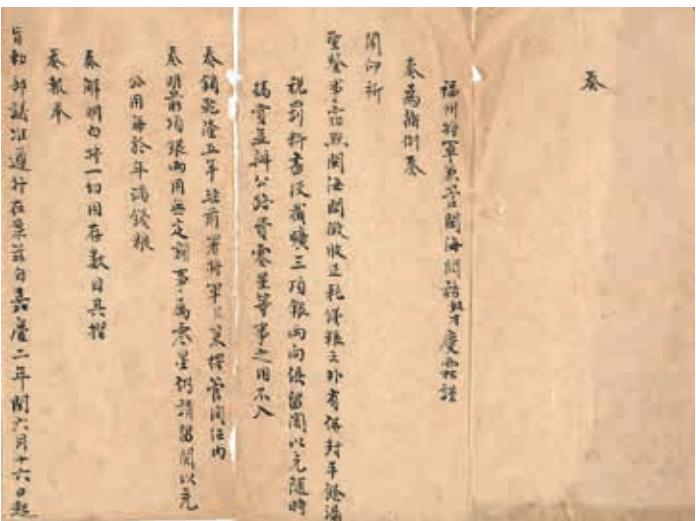 奏
福州將軍兼管閩海關稅奴才慶霖謹
奏為循例奏
聞仰祈
聖鑒事竊照閩海關徵收正耗錢糧之外有併封平餘
稅罰料書役三項銀兩向係留關以充隨時
犒賞並辦公路費零星等事之用不入
奏銷乾隆五年經前署將軍管關任內
奏明前項銀兩用無定額事屬零星仍請留關以充
公用每於年滿錢糧
奏解明白將一切用存數目具摺
奏報奉
旨勅部議准遵行在案茲自嘉慶二年閏六月十六日起